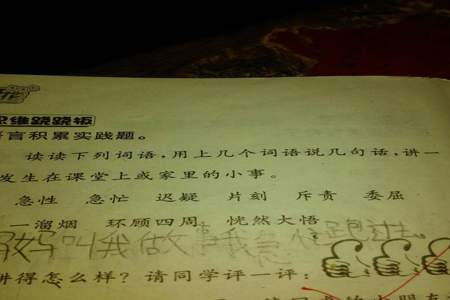 思维跷跷板
语言积累实践题。
读读下列词语,用上几个词语说几句话,讲一
发生在课堂上或家里的小事。
急性 急忙 迟疑 片刻 斥责 委屈
一溜烟 环顾四周 恍然大悟
妈妈叫我做事我急忙跑过去。
讲得怎么样?请同学评一评: